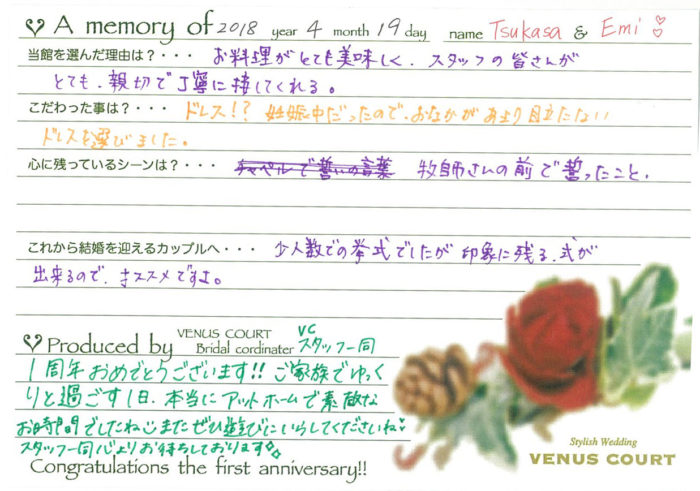 A memory of 2018 year 4 month 19 day name Tsukasa & Emi
当館を選んだ理由は？・・・ お料理がとても美味しく、スタッフの皆さんが
とても、親切で丁寧に接してくれる。
こだわった事は？・・・ ドレス!? 妊娠中だったので、おなかがあまり目立たない
ドレスを選びました。
心に残っているシーンは？・・・ チャペルで誓いの言葉 牧師さんの前で誓ったこと、
これから結婚を迎えるカップルへ・・・ 少人数での挙式でしたが印象に残る、式が
出来るので、オススメですよ。
Produced by VENUS COURT Bridal cordinater VC スタッフ一同
1周年おめでとうございます!! ご家族でゆっく
りと過ごす1日、本当にアットホームで素敵な
お時間でしたね またぜひ遊びにいらしてくださいね
スタッフ一同心よりお待ちしております
Congratulations the first anniversary!!
Stylish Wedding
VENUS COURT